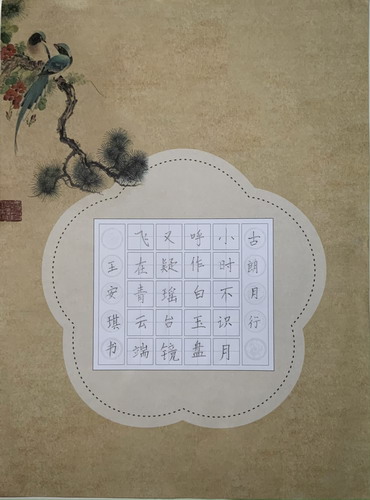 古朗月行
小时不识月
呼作白玉盘
又疑瑶台镜
飞在青云端
王安琪书